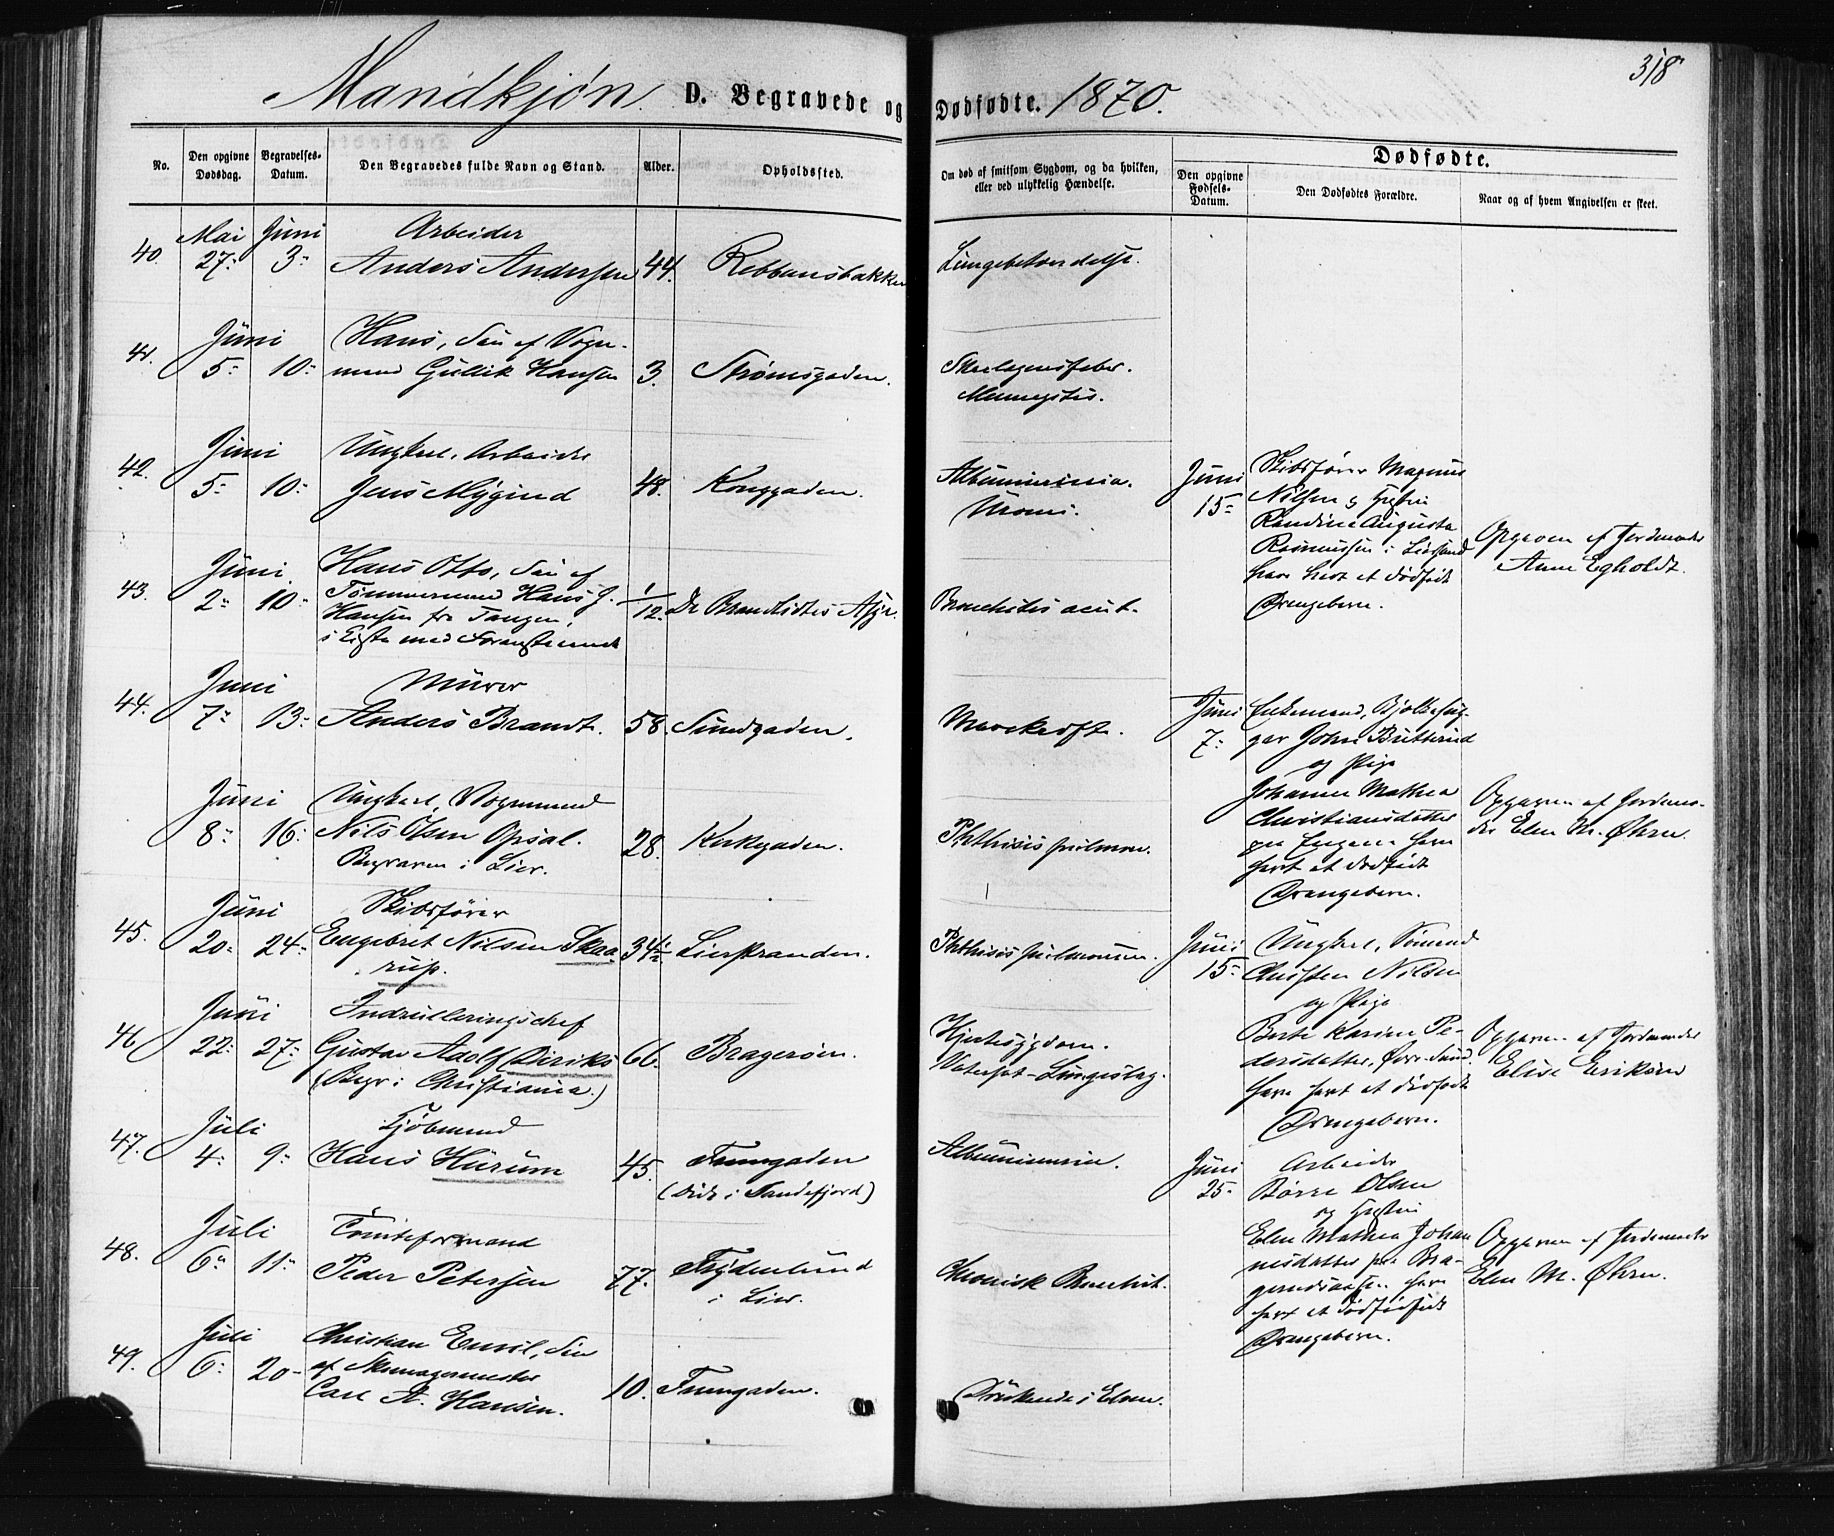 318
Mandkjøn. D. Begravede og Dødfødte. 1870.
No.
Den opgivne Dødsdag.
Begravelses-Datum.
Den Begravedes fulde Navn og Stand.
Alder.
Opholdssted.
Om død af smitsom Sygdom, og da hvilken,
eller ved ulykkelig Hændelse.
Dødfødte.
Den opgivne Fødsels-Datum.
Den Dødfødtes Forældre.
Naar og af hvem Angivelsen er skeet.
Mai Juni Arbeider
40. 27 3 Anders Andersen 44. Lungebetændelse.
Juni Hans, Søn af Vogn-
41. 5 10 mand Gullik Hansen 3. Strømsgaden. Skarlagensfeber.
Juni Ungkarl, Arbeider
42. 5 10 Jens Mygind 48. Konggaden. Albuminuria.
Juni Hans Otto, Søn af
43. 2 10 Tømmermand Hans J. 1/12 Bronchitis acut.
Hansen fra Tangen,
Juni Murer
44. 7 13 Anders Brandt. 58. Sundgaden. Marckedft.
Juni Ungkarl, Vognmand
8 16 Nils Olsen Opsal. 28. Kirkegaden. Phthisis pulmon.
Begraven i Lier.
Juni Skibsfører
45. 20 24 Engebret Nilsen Skaa- 34½ Lierstranden. Phthisis pulmonum.
rup.
Juni Indrulleringschef
46 22 27 Gustav Adolf Diriks 66. Bragerøen. Hjertesygdom.
(Begr. i Christiania.) Vatersot - Lungeslag.
Juli Kjøbmand
47. 4 9 Hans Hurum 45. Tomtegaden Albuminuria.
(død i Sandefjord)
Juli Tomteformand
48. 6 11 Peder Petersen 77. Frydenlund Chronisk Bronchit.
i Lier.
Juli Christian Emil, Søn
49. 6 20 af Skomagermester
Carl A. Hansen. 10. Druknede i Elven.
Juni Skibsfører Magnus
15 Nilsen og Hustru
Randine Augusta
Rasmussen i Liersand Opgiven af Jordemoder
have havt et dødfødt Anne Egholdt.
Drengebarn.
Juni Enkemand, Bjelkehug-
7 ger Johan Butterud
og Pige
Johanne Mathea Opgiven af Jordemo-
Christiansdatter der Elen M. Øhrn.
paa Engene have
havt et dødfødt
Drengebarn.
Juni Ungkarl, Sømand
15 Christen Nilsen
og Pige
Berte Karine Pe- Opgiven af Jordemoder
dersdatter, Øvre Sund, Elise Eriksen
have havt et dødfødt
Drengebarn.
Juni Arbeider
25 Børre Olsen
og Hustru
Elen Mathea Johan- Opgiven af Jordemoder
nesdatter paa Bra- Elen M. Øhrn.
gernæsaasen have
havt et dødfødt
Drengebarn.